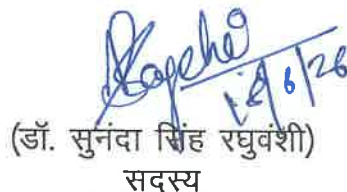 6/26
(डॉ. सुनंदा सिंह रघुवंशी)
सदस्य